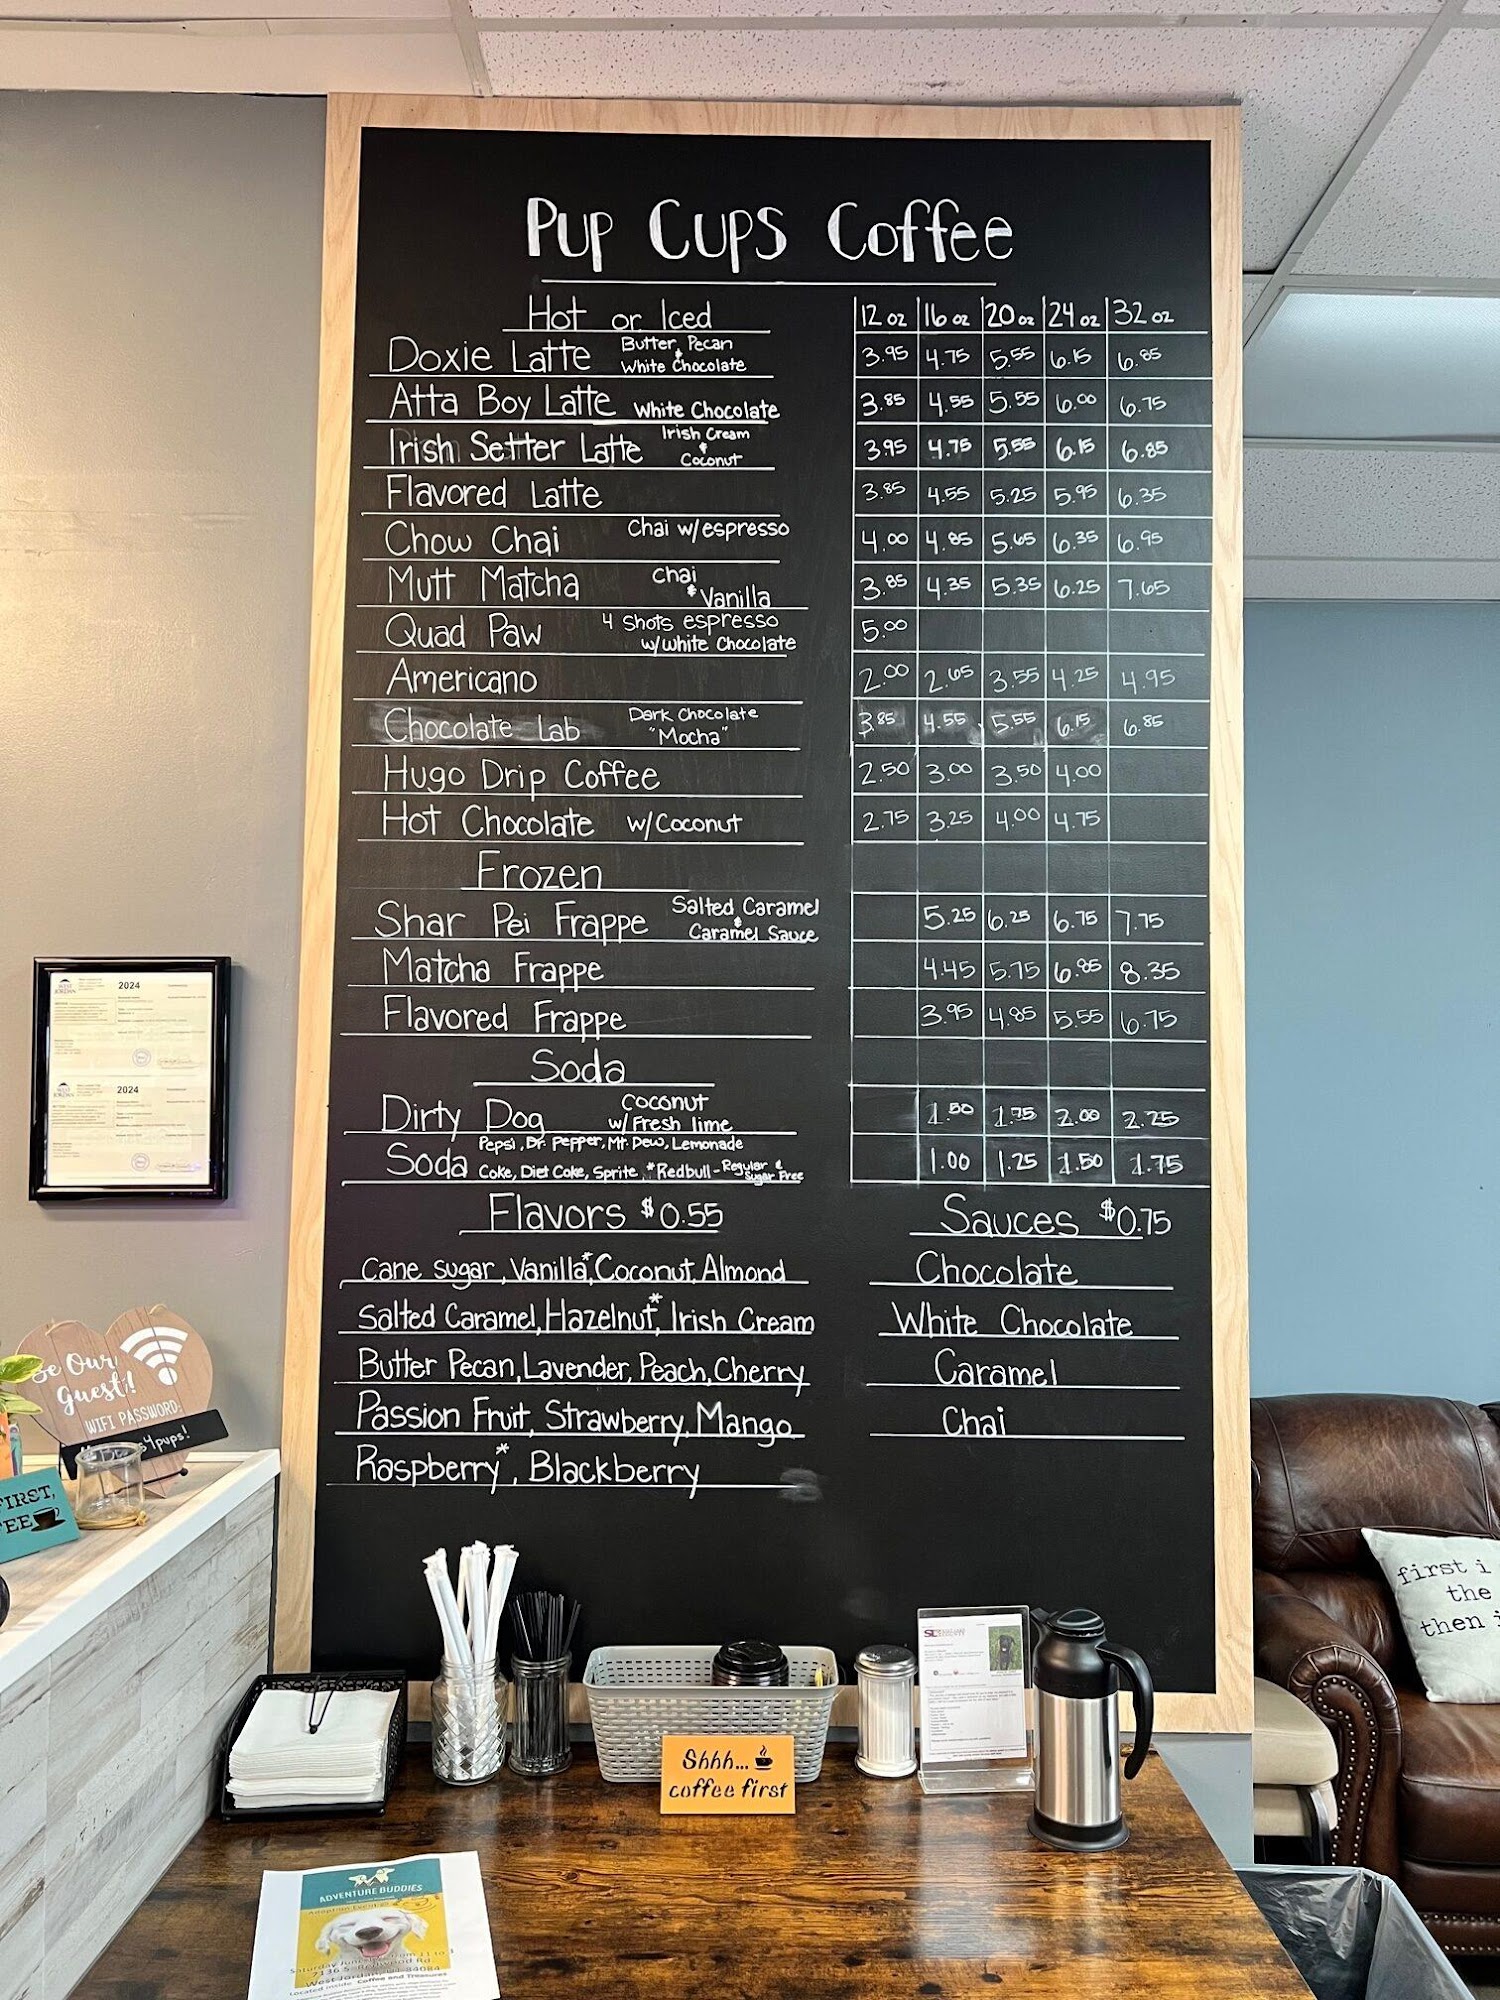 Pup Cups Coffee
Hot or Iced 12 oz 16 oz 20 oz 24 oz 32 oz
Doxie Latte Butter Pecan & White Chocolate 3.95 4.75 5.55 6.15 6.85
Atta Boy Latte White Chocolate 3.85 4.55 5.55 6.00 6.75
Irish Setter Latte Irish Cream & Coconut 3.95 4.75 5.55 6.15 6.85
Flavored Latte 3.85 4.55 5.25 5.95 6.35
Chow Chai Chai w/espresso 4.00 4.85 5.65 6.35 6.95
Mutt Matcha Chai & Vanilla 3.85 4.35 5.35 6.25 7.65
Quad Paw 4 Shots espresso w/white Chocolate 5.00
Americano 2.00 2.65 3.55 4.25 4.95
Chocolate Lab Dark Chocolate "Mocha" 3.85 4.55 5.55 6.15 6.85
Hugo Drip Coffee 2.50 3.00 3.50 4.00
Hot Chocolate w/Coconut 2.75 3.25 4.00 4.75
Frozen
Shar Pei Frappe Salted Caramel & Caramel Sauce 5.25 6.25 6.75 7.75
Matcha Frappe 4.45 5.75 6.85 8.35
Flavored Frappe 3.95 4.85 5.55 6.75
Soda
Dirty Dog Coconut w/Fresh lime 1.50 1.75 2.00 2.25
Soda Pepsi, Dr. Pepper, Mt. Dew, Lemonade Coke, Diet Coke, Sprite *Redbull-Regular & Sugar Free 1.00 1.25 1.50 1.75
Flavors $0.55
Cane sugar, Vanilla*, Coconut, Almond
Salted Caramel, Hazelnut*, Irish Cream
Butter Pecan, Lavender, Peach, Cherry
Passion Fruit, Strawberry, Mango
Raspberry*, Blackberry
Sauces $0.75
Chocolate
White Chocolate
Caramel
Chai
2024
WEST JORDAN
2024
WEST JORDAN
Be Our
Guest!
WIFI PASSWORD:
4pups!
FIRST,
first i
the
then
Shhh...
coffee first
ADVENTURE BUDDIES
Adoption Event
Saturday June from 11 to
7136 S. Redwood Rd.
West Jordan, UT 84084
Located inside Coffee and Treasures